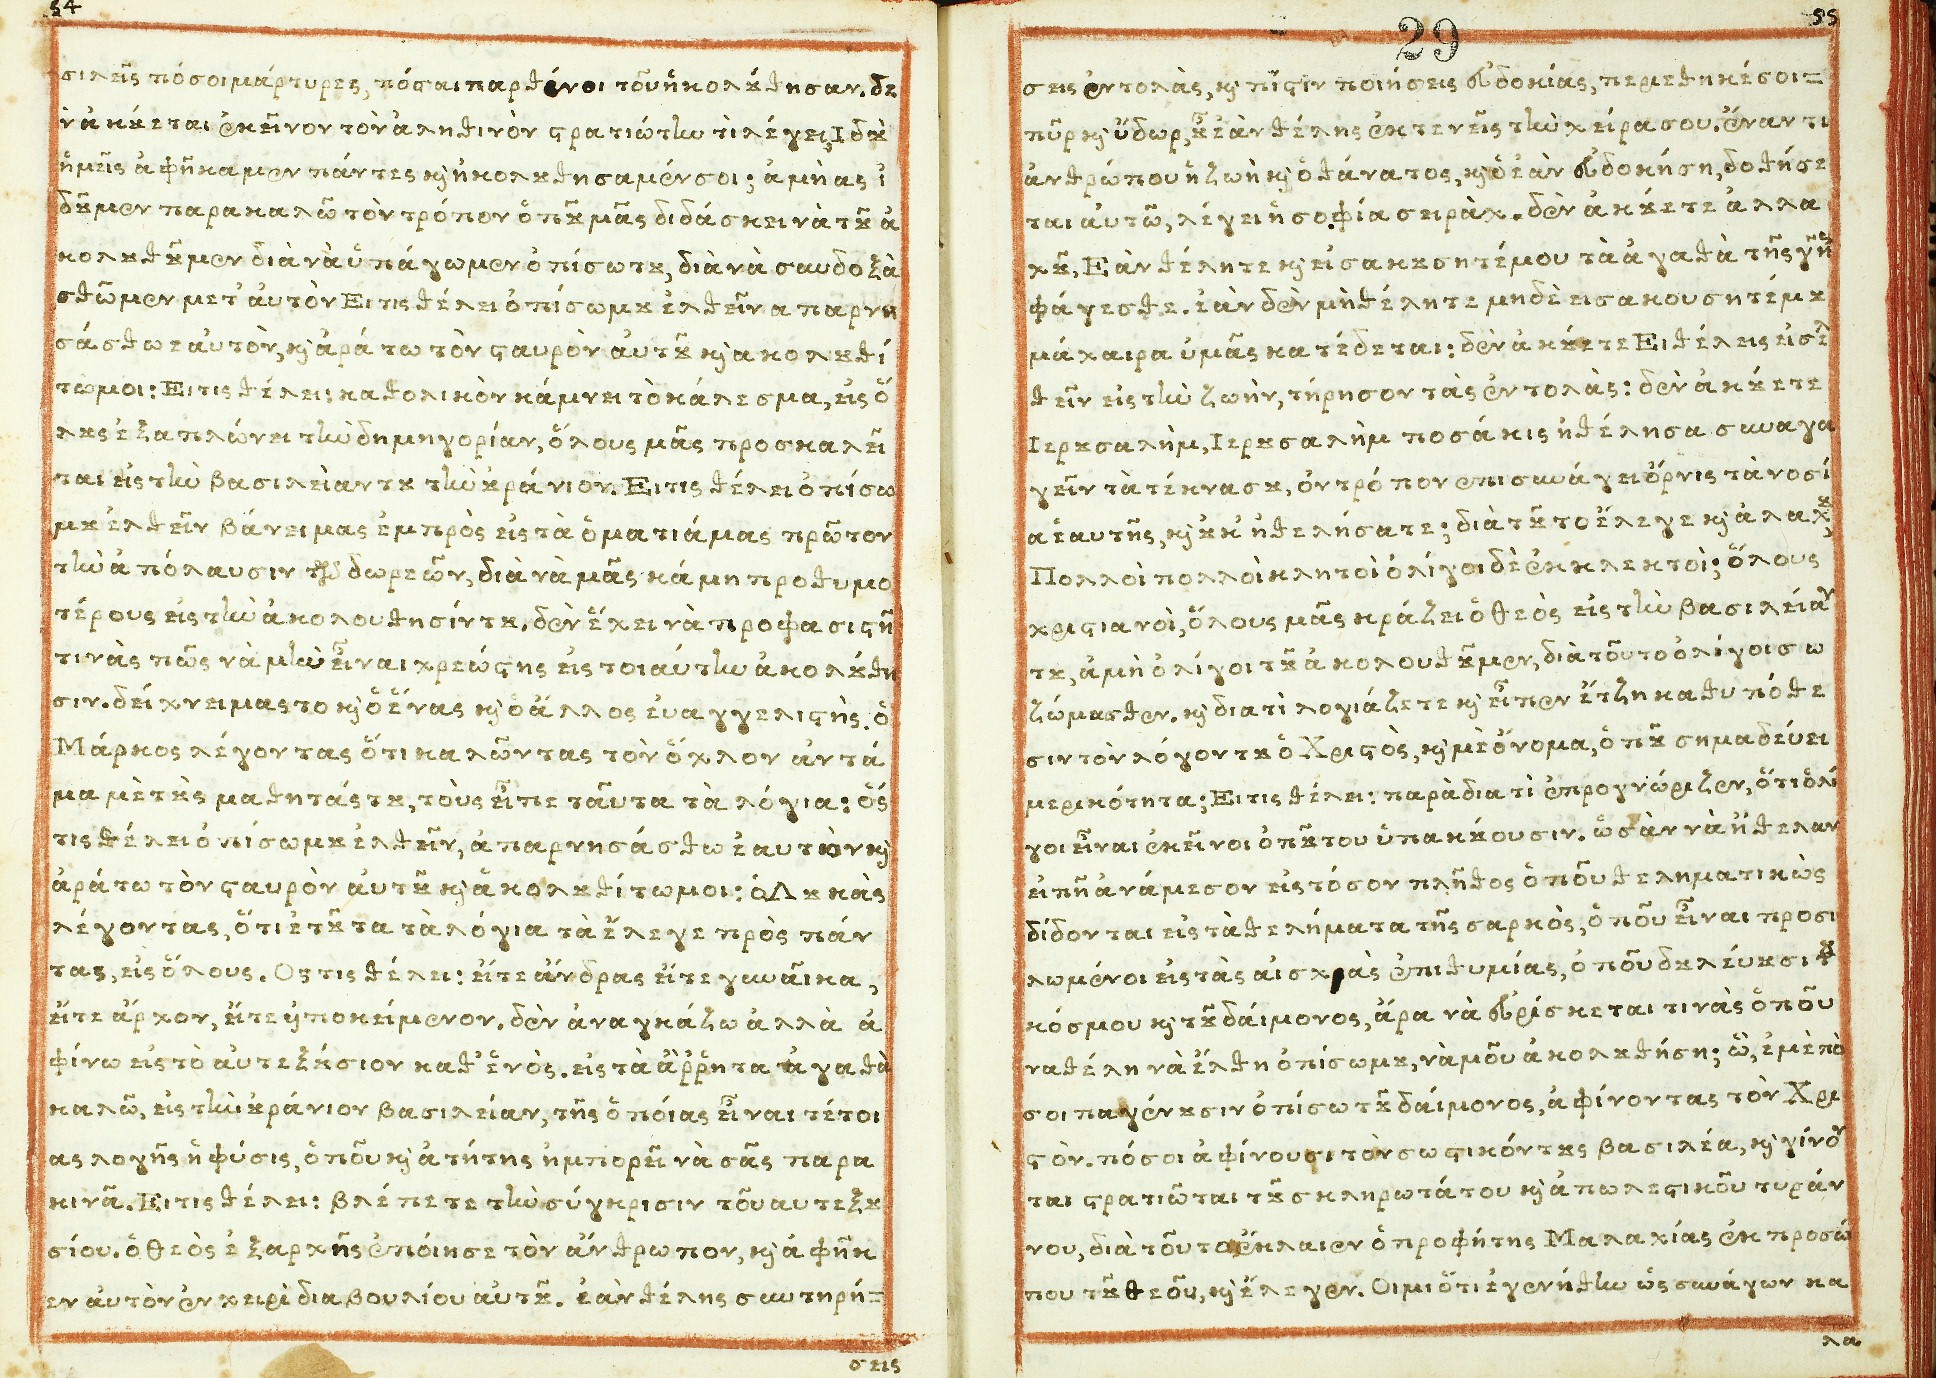 54
σιλεῖς πόσοι μάρτυρες, πόσαι παρθένοι τοῦ ἠκολȣ́θησαν. δε
ν̀ ἀκȣ́εται ἐκεῖνον τὸν ἀληθινὸν ςρατιώτην τὶ λέγει, Ιδȣ̀
ἡμεῖς ἀφήκαμεν πάντες κὶ ἠκολȣθησαμέν σοι; ἀμὴ ας ἰ
δȣ̃μεν παρακαλῶ τὸν τρόπον ὁπȣ̃ μᾶς διδάσκει νὰ τȣ̃ ἀ
κολȣθȣ̃μεν διὰ νὰ ὑπάγωμεν ὀπίσωτȣ, διὰ νὰ συνδοξα
σθῶμεν μετ' ἀυτὸν Ει τις θέλει ὀπίσωμȣ ἐλθεῖν απαρνη
σάσθω εαυτὸν, κὶ ἀράτω τὸν ςαυρὸν ἀυτȣ̃ κὶ ακολȣθί
τωμοι: Ει τις θέλει: καθολικὸν κάμνει τὸ κάλεσμα, εἰς ὅ
λȣς ἐξαπλώνει τὴν δημηγορίαν, ὅλους μᾶς προσκαλεῖ
ται εἰς τὴν βασιλείαν τȣ τὴν ȣράνιον. Ει τις θέλει ὀπίσω
μȣ ἐλθεῖν βάνει μας ἐμπρὸς εἰς τὰ ὀματιά μας πρῶτον
τὴν ἀπόλαυσιν τῶν δωρεῶν, διὰ νὰ μᾶς κάμη προθυμο
τέρους εἰς τὴν ἀκολουθησίν τȣ. δὲν ἔχει νὰ προφασιςῆ
τινὰς πῶς νὰ μὴν εἶναι χρεώςης εἰς τοιαύτην ἀκολȣ́θη
σιν. δείχνει μας το κὶ ὁ ἕνας κὶ ὁ ἄλλος ἐυαγγελιςής. ὁ
Μάρκος λέγοντας ὅτι καλῶντας τὸν ὄχλον ἀντά
μα μὲ τȣς μαθητάς τȣ, τοὺς εἶπε ταῦτα τὰ λόγια: ὅς
τις θέλει ὀπίσωμȣ ἐλθεῖν, ἀπαρνησάσθω ἑαυτὸν κὶ
ἀράτω τὸν ςαυρὸν ἀυτȣ̃ κὶ ἀκολȣθίτωμοι: ὁ Λȣκὰς
λέγοντας, ὅτι ἐτȣ̃τα τὰ λόγια τὰ ἔλεγε πρὸς πάν
τας, εἰς ὅλους. Οςτις θέλει: εἴτε ἄνδρας εἴτε γυναῖκα,
εἴτε ἄρχον, εἴτε ὑποκείμενον. δὲν ἀναγκάζω ἀλλὰ ἀ
φίνω εἰς τὸ ἀυτεξȣ́σιον καθ' ἑνὸς. εἰς τὰ ἄῤῥητα ἀγαθὰ
καλῶ, εἰς τὴν ȣράνιον βασιλείαν, τῆς ὁποίας εἶναι τέτοι
ας λογῆς ἡ φύσις, ὁποῦ κὶ ἀτήτης ἠμπορεῖ νὰ σᾶς παρα
κινᾶ. Ει τις θέλει: βλέπετε τὴν σύγκρισιν τοῦ αυτεξȣ
σίου. ὁ θεὸς ἐξαρχῆς ἐποίησε τὸν ἄνθρωπον, κὶ ἀφῆκ
εν ἀυτὸν ἐν χειρὶ διαβουλίου ἀυτȣ̃. ἐὰν θέλης συντηρή=
σεις
55
29
σεις ἐντολὰς, κὶ πίςιν ποιήσεις εὐδοκίας, περιεθηκέ σοι=
πῦρ κὶ ὕδωρ, ȣ̃ ἐὰν θέλης ἐκτενεῖς τὴν χείρα σου. ἔναντι
ἀνθρώπου ἡ ζωὴ κὶ ὁ θάνατος, κὶ ὃ ἐὰν εὐδοκήση, δοθήσε
ται ἀυτῶ, λέγει ἡ σοφία σειράχ. δὲν ἀκȣ́ετε ἀλλα
χȣ̃, Εὰν θέλητε κὶ εἰσακȣσητέ μου τὰ ἀγαθὰ τῆς γῆς
φάγεσθε. ἐὰν δὲν μὴ θέλητε μηδὲ εισακουσητέ μȣ
μάχαιρα ὑμᾶς κατέδεται: δὲν ἀκȣ́ετε Ει θέλεις εἰσελ
θεῖν εἰς τὴν ζωὴν, τήρησον τὰς ἐντολὰς: δὲν ἀκȣ́ετε
Ιερȣσαλὴμ, Ιερȣσαλὴμ ποσάκις ἠθέλησα συναγα
γεῖν τὰ τέκνα σȣ, ὁν τρόπον ἐπισυνάγει ὄρνις τὰ νοσί
α ἑαυτῆς, κὶ ȣκ' ἠθελήσατε; διὰ τȣ̃το ἔλεγε κὶ ἀλαχȣ̃,
Πολλοὶ πολλοὶ κλητοὶ ὀλίγοι δὲ ἐκκλεκτοὶ; ὅλους
χριςιανοὶ, ὅλους μᾶς κράζει ὁ θεὸς εἰς τὴν βασιλείαν
τȣ, ἀμὴ ὀλίγοι τȣ̃ ἀκολουθȣ̃μεν, διὰ τοῦτο ὀλίγοι σω
ζώμασθεν. κὶ διατὶ λογιάζετε κὶ εἶπεν ἔτζη καθυπόθε
σιν τὸν λόγον τȣ ὁ Χριςὸς, κὶ μὲ ὄνομα, ὁπȣ̃ σημαδεύει
μερικότητα; Ει τις θέλει: παρὰ διατὶ ἐπρογνώριζεν, ὅτι ὀλί
γοι εἶναι ἐκεῖνοι ὁπȣ̃ του ὑπακȣ́ουσιν. ὡσὰν νὰ ἤθελαν
εἰπῆ ἀνάμεσον εἰς τόσον πλῆθος ὁποῦ θεληματικὼς
δίδονται εἰς τὰ θελήματα τῆς σαρκὸς, ὁποῦ εἶναι προσι
λωμένοι εἰς τὰς αἰσχρὰς ἐπιθυμίας, ὁποῦ δȣλέυȣσι τȣ̃
κόσμου κὶ τȣ̃ δαίμονος, ἄρα νὰ εὑρίσκεται τινὰς ὁποῦ
να θέλη νὰ ἔλθη ὀπίσωμȣ, νὰ μοῦ ἀκολȣθήση; ὢ, ἐμὲ πό
σοι παγένȣσιν ὀπίσω τȣ̃ δαίμονος, ἀφίνοντας τὸν Χρι
ςὸν. πόσοι ἀφίνουσι τὸν σωςικόν τȣς βασιλέα, κὶ γίνον
ται ςρατιῶται τȣ̃ σκληρωτάτου κὶ ἀπωλεςικοῦ τυράν
νου, διὰ τοῦτο ἔκλαιεν ὁ προφήτης Μαλαχίας ἐκ προσώ
που τȣ̃ θεοῦ, κὶ ἔλεγεν. Οιμι ὅτι ἐγενήθην ὡς συνάγων κα
λα